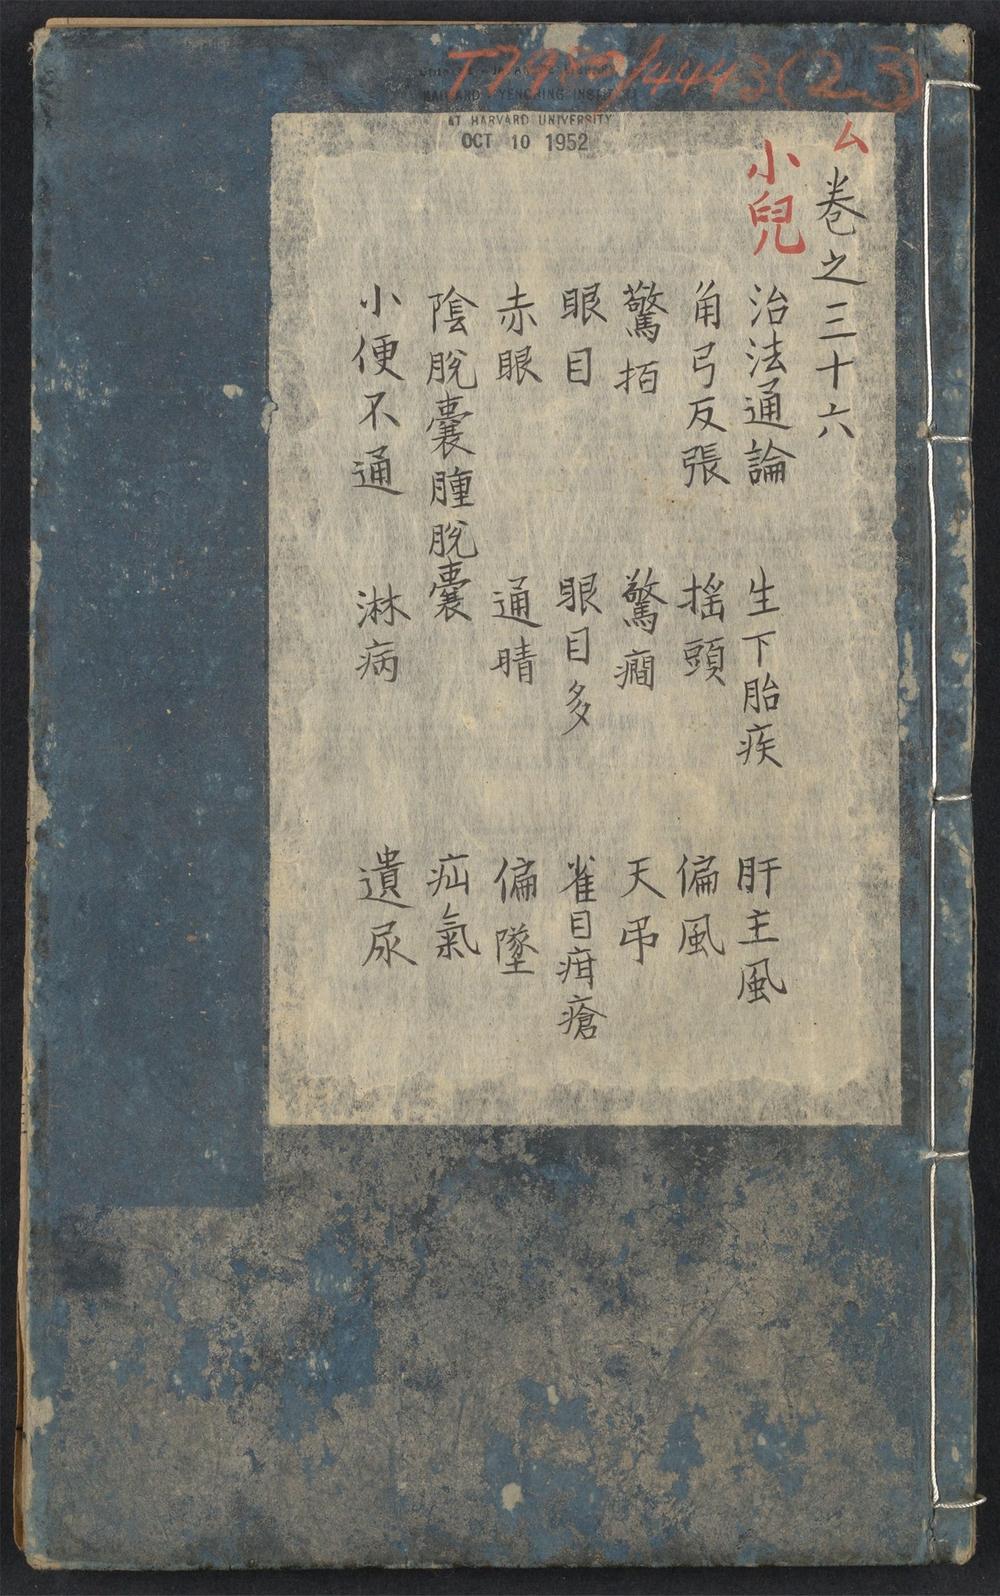 T7950/4443(2-3)
HARVARD-YENCHING INSTITUTE
AT HARVARD UNIVERSITY
OCT 10 1952
ム
卷之三十六
小兒
治法通論 生下胎疾 肝主風
角弓反張 揺頭 偏風
驚拍 驚癎 天吊
眼目 眼目多 雀目疳瘡
赤眼 通睛 偏墜
陰脫囊腫脫囊 疝氣
小便不通 淋病 遺尿